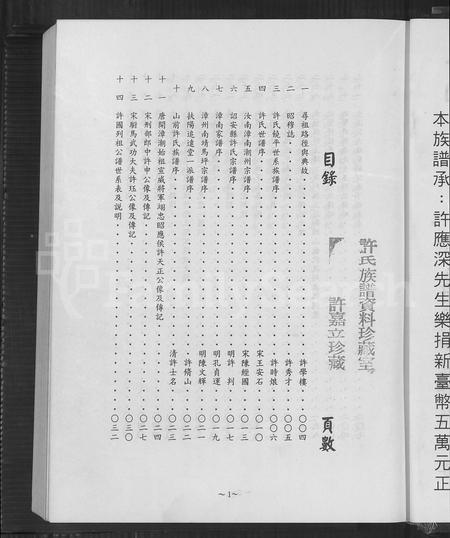 本族譜承：許應深先生樂捐新臺幣五萬元正
許氏族譜資料珍藏室
許嘉立珍藏
目錄 頁數
一 尋祖路徑與典故 許學樓 〇〇四
二 昭穆誌 許秀才 〇〇五
三 許氏饒平世系族譜序 許時娘 〇〇六
四 許氏世譜序 宋王安石 〇一〇
五 汝南漳南潮州宗譜序 宋陳經國 〇一三
六 詔安縣許氏宗譜序 明許判 〇一七
七 漳南家譜序 明孔貞運 〇一九
八 漳州南靖馬坪宗譜序 明陳文輝 〇二一
九 扶陽追遠堂一派譜序 許脩山 〇二二
十 山前許氏族譜序 清許士名 〇二三
十一 唐開漳潮始祖宣威將軍翊忠昭應侯許天正公像及傳記 〇二四
十二 宋刑部郎中許申公像及傳記 〇二七
十三 宋駙馬武功大夫許珏公像及傳記 〇三〇
十四 許國列祖公譜世系表及說明 〇三二
~1~